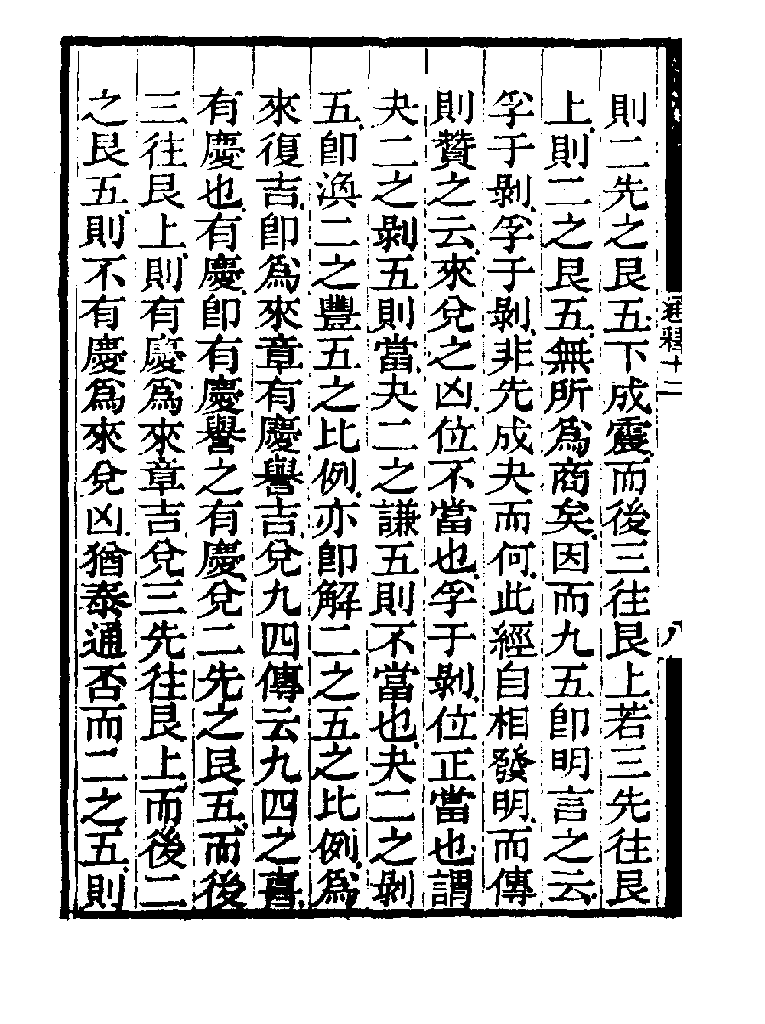 則二先之艮五下成震而後三往艮上若三先往艮
上則二之艮五無所爲商矣因而九五卽明言之云
孚于剝孚于剝非先成夬而何此經自相發明而傳
則贊之云來兌之凶位不當也孚于剝位正當也謂
夬二之剝五則當夬二之謙五則不當也夬二之剝
五卽渙二之豐五之比例亦卽解二之五之比例爲
來復吉卽爲來章有慶譽吉兌九四傳云九四之喜
有慶也有慶卽有慶譽之有慶兌二先之艮五而後
三往艮上則有慶爲來章吉兌三先往艮上而後二
之艮五則不有慶爲來兌凶猶泰通否而二之五則
通釋十二
八